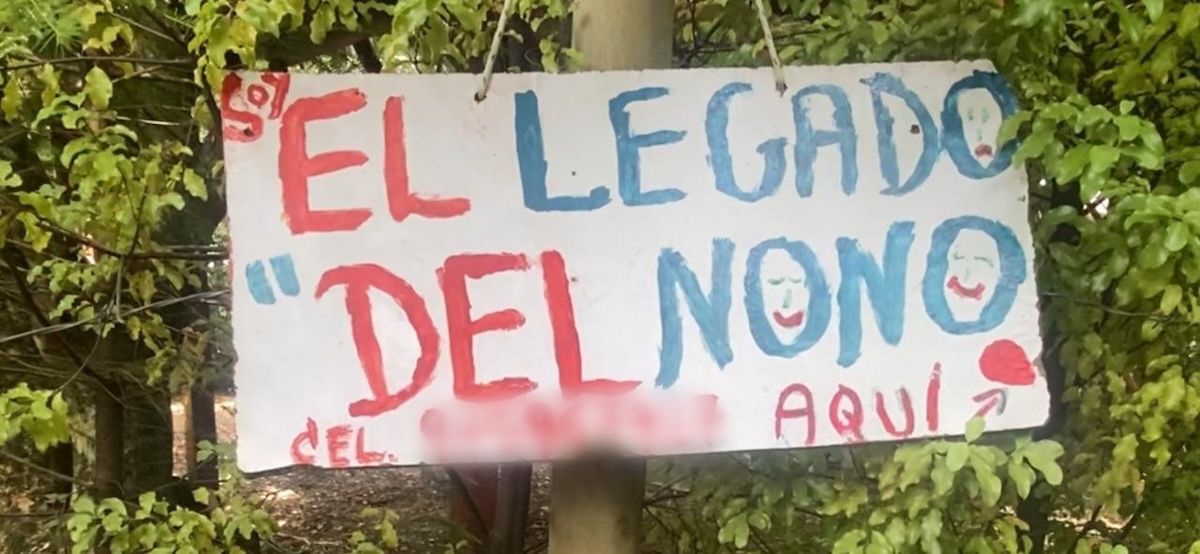 SOY
EL LEGADO
"DEL NONO
CEL. AQUÍ